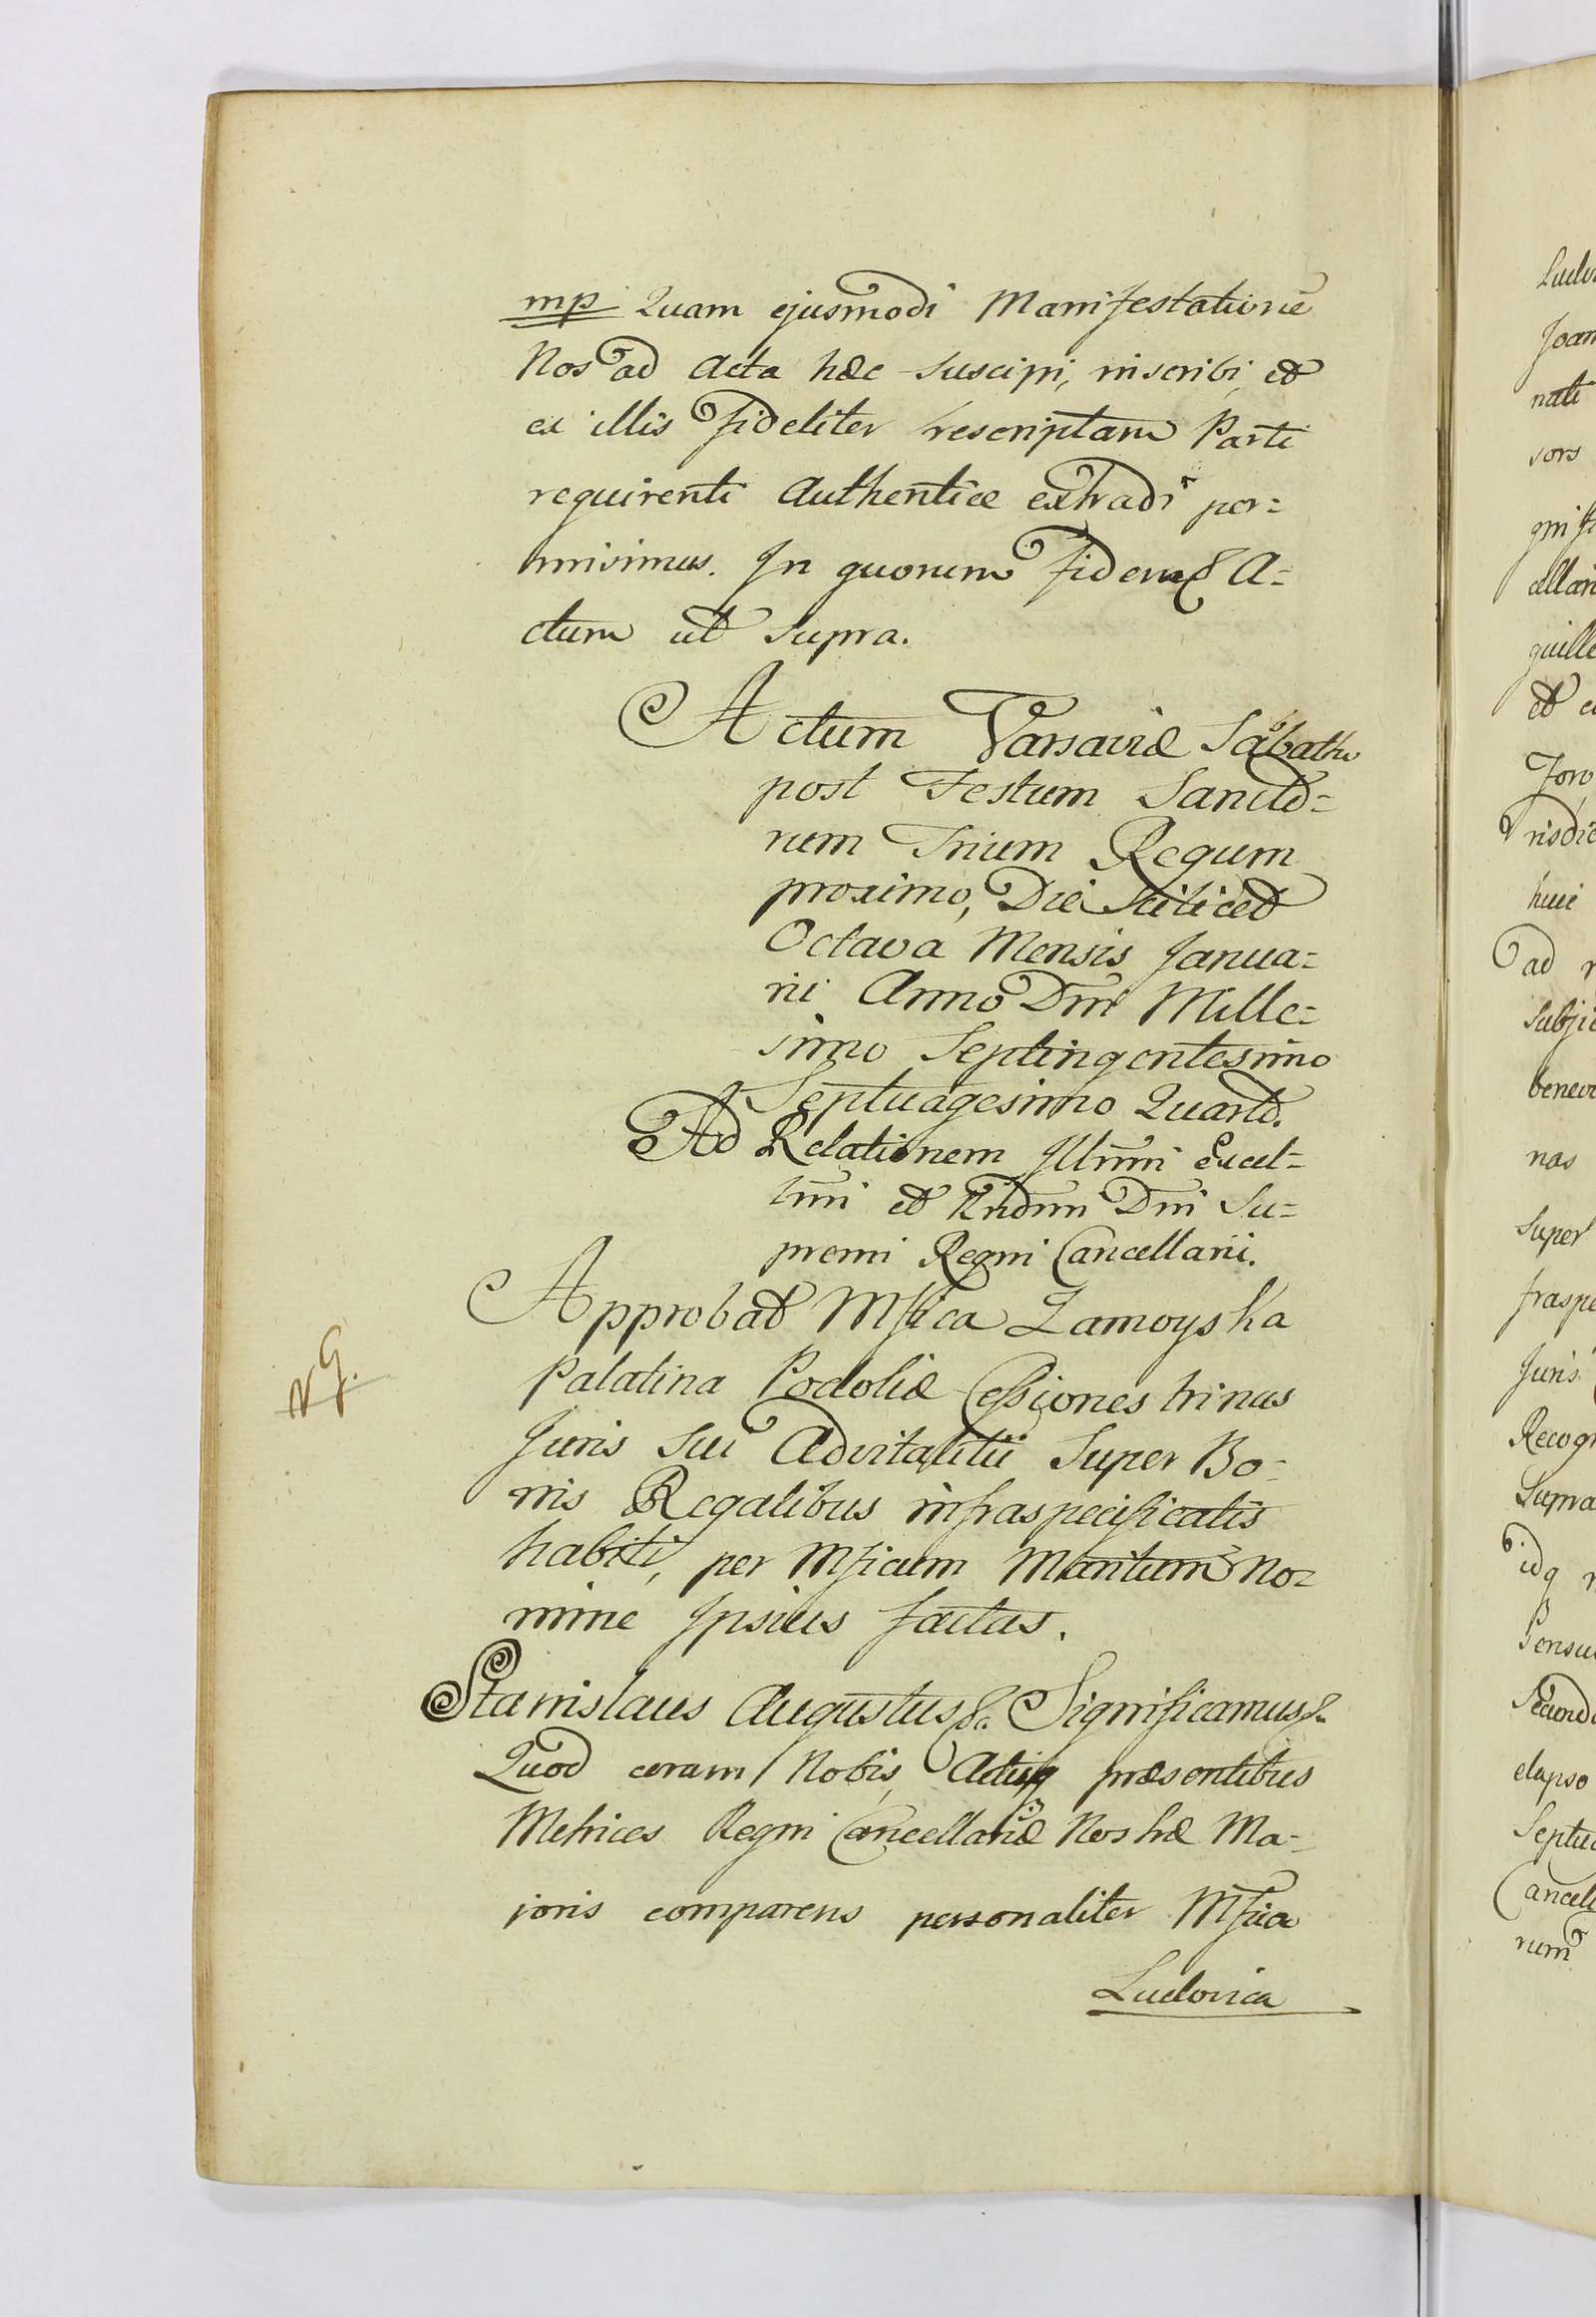 mp Quam ejusmodi Manifestationē
Nos ad Acta hæc suscipi, inscribi, et
ex illis fideliter rescriptam Parti
requirenti Authentice extradi per=
misimus. In quorum fidem & A=
ctum ut supra.
Actum Varsaviæ Sabbatho
post Festum Sancto=
rum Trium Regum
proximo, Die Scilicet
Octava Mensis Janua=
rii Anno Dni Mille=
simo Septingentesimo
Septuagesimo Quarto.
Ad Relationem Illmi Excel=
lmi et Rndmi Dni Su=
premi Regni Cancellarii.
Approbat Mfica Zamoyska
Palatina Podoliæ Cessiones trinas
Juris sui Advitalitii super Bo=
nis Regalibus infraspecificatis
habiti, per Mficum Maritum No=
mine Ipsius factas.
Stanislaus Augustus &. Significamus &.
Quod coram Nobis, Actisq præsentibus
Metrices Regni Cancellariæ Nostræ Ma=
joris comparens personaliter Mfica
Ludovica
Ludov
Joan
nati
sors
gnifi
cellari
quille
et ex
Foro
risdic
huic
ad r
subjic
benevo
nas
super
fraspe
Juris
Recogn
Supra
idq r
Consu
Secund
elapso
Septua
Cancell
rum